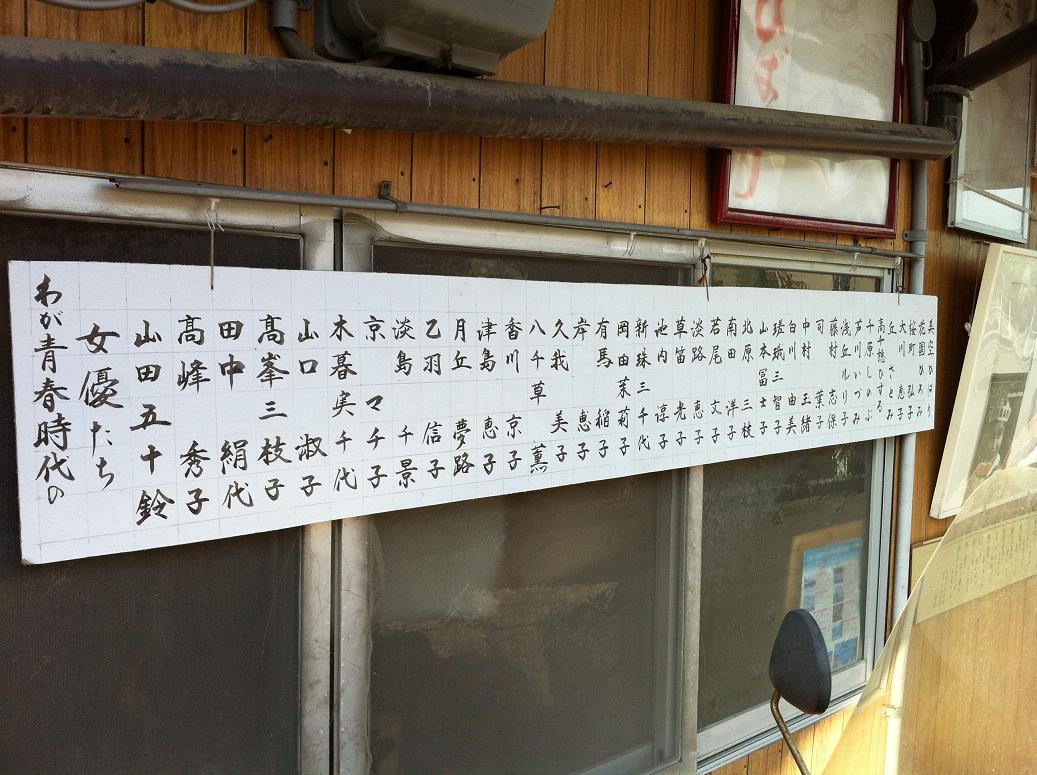 わが青春時代の
女優たち
山田五十鈴
髙峰秀子
田中絹代
髙峯三枝子
山口淑子
木暮実千代
京マチ子
淡島千景
乙羽信子
月丘夢路
津島恵子
香川京子
八千草薫
久我美子
岸恵子
有馬稲子
岡田茉莉子
新珠三千代
池内淳子
草笛光子
淡路恵子
若尾文子
南田洋子
北原三枝
山本富士子
瑳峨三智子
白川由美
中村玉緒
司葉子
藤村志保
浅丘ルリ子
芦川いづみ
千原しのぶ
高千穂ひづる
丘さとみ
大川恵子
桜町弘子
花園ひろみ
美空ひばり